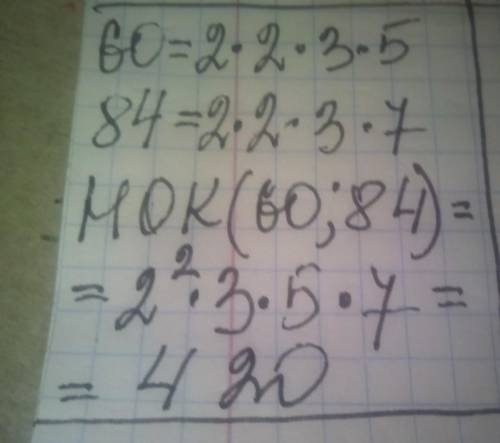 60=2·2·3·5
84=2·2·3·7
НОК(60;84)=
=2²·3·5·7=
=420